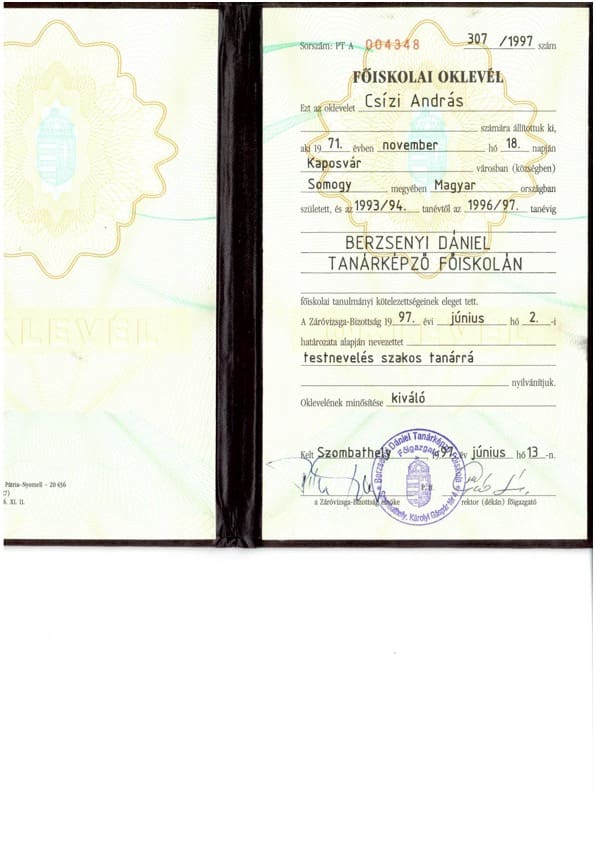 KLEVÉL
Pátria-Nyomell – 20 656
Sorszám: PT A 004348 307 /1997 szám
FŐISKOLAI OKLEVÉL
Ezt az oklevelet Csízi András
számára állítottuk ki,
aki 19 71. évben november hó 18. napján
Kaposvár városban (községben)
Somogy megyében Magyar országban
született, és az 1993/94. tanévtől az 1996/97. tanévig
BERZSENYI DÁNIEL
TANÁRKÉPZŐ FŐISKOLÁN
főiskolai tanulmányi kötelezettségeinek eleget tett.
A Záróvizsga-Bizottság 19 97. évi június hó 2. -i
határozata alapján nevezettet
testnevelés szakos tanárrá
nyilvánítjuk.
Oklevelének minősítése kiváló
Kelt Szombathely, 1997. év június hó 13 -n.
Berzsenyi Dániel Tanárképző Főiskola
Főigazgató
P. H.
Szombathely, Károlyi Gáspár tér 4.
a Záróvizsga-Bizottság elnöke rektor (dékán) főigazgató